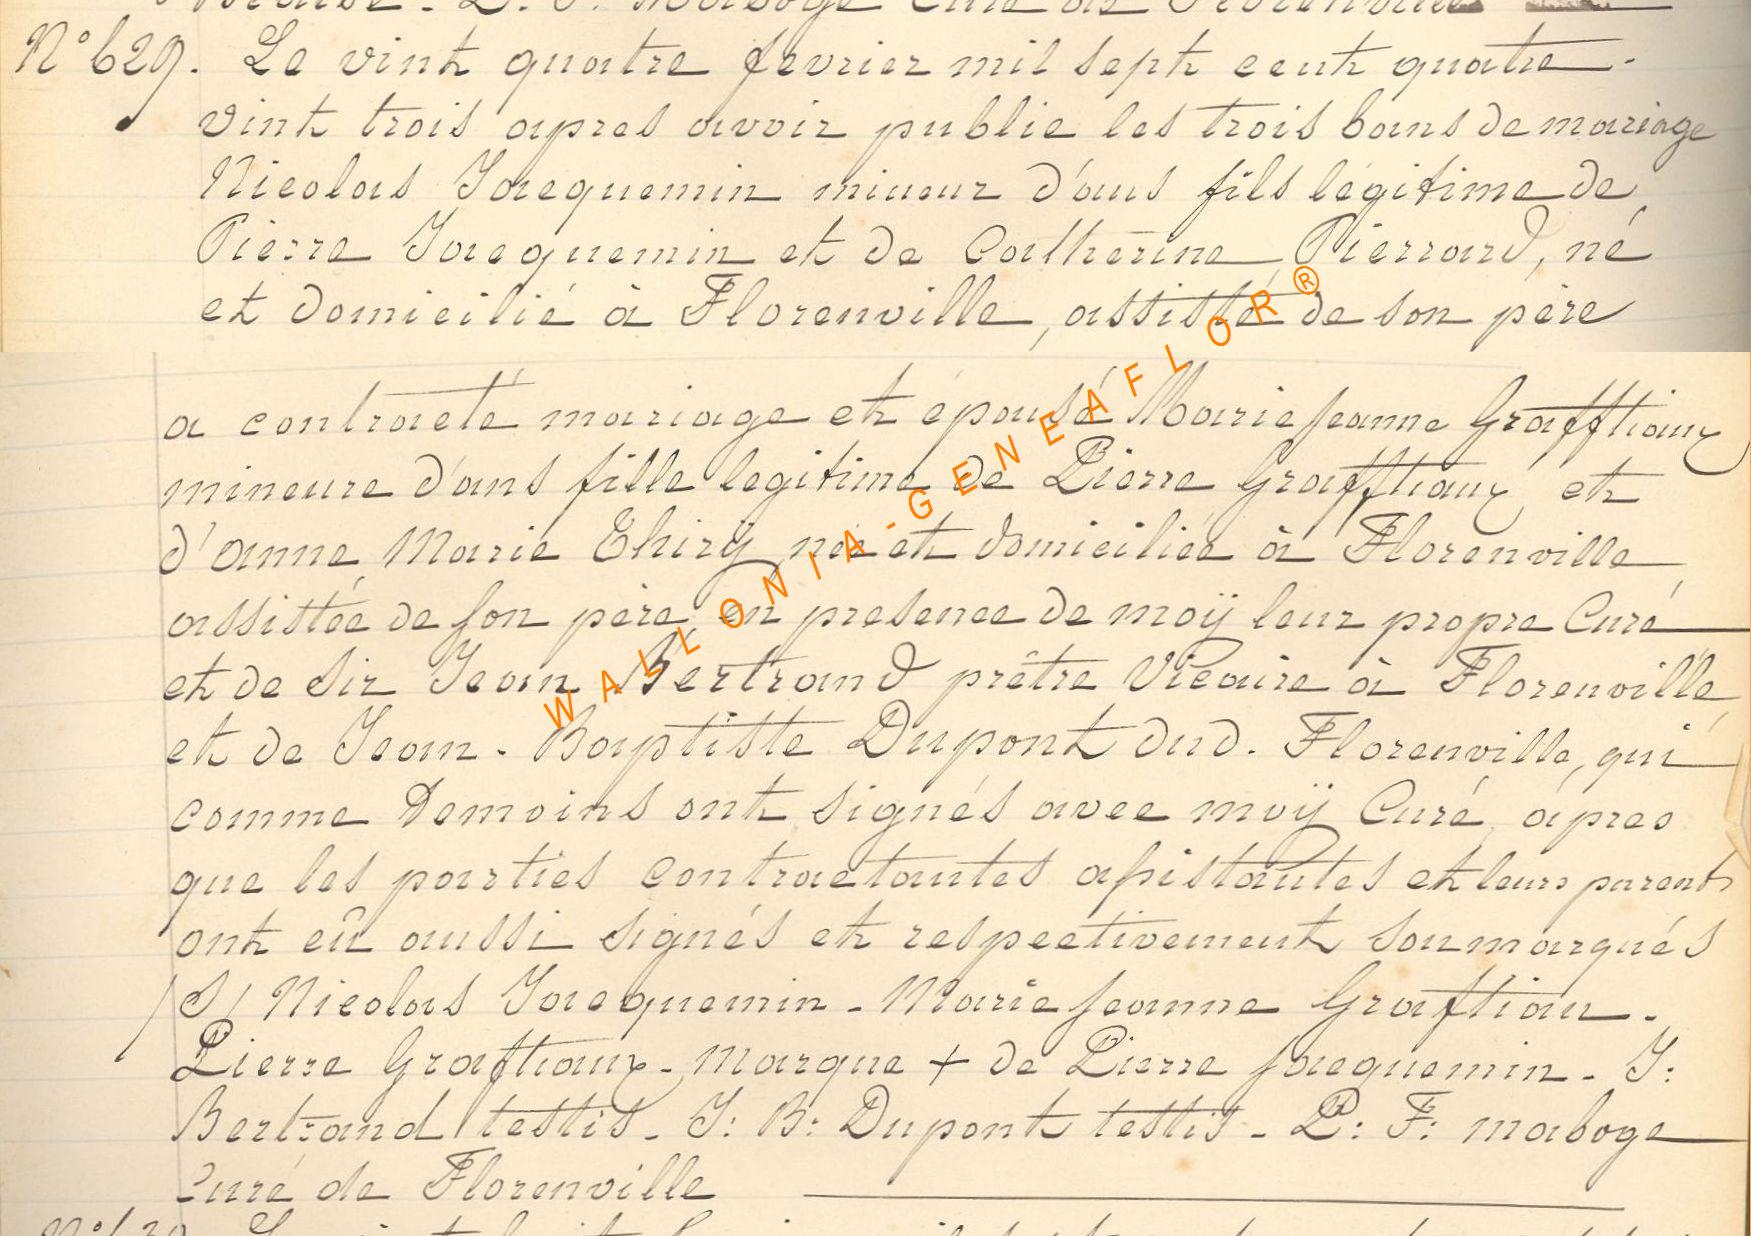 L. F. Maboge Curé de Florenville
N° 629. Le vint quatre fevrier mil sept cent quatre
vint trois apres avoir publié les trois bans de mariage
Nicolas Jacquemin mineur d'ans fils légitime de
Pierre Jacquemin et de Catherine Pierrard, né
et domicilié à Florenville, assisté de son père
a contracté mariage et épousé Marie Jeanne Grafftiaux
mineure d'ans fille legitime de Pierre Grafftiaux et
d'anne Marie Thirÿ née et domiciliée à Florenville,
assistée de son père, en presence de moÿ leur propre Curé
et de Sir Jean Bertrand prêtre Vicaire à Florenville
et de Jean-Baptiste Dupont dud. Florenville, qui
comme Temoins ont signés avec moÿ Curé, àpres
que les parties contractantes assistantes et leurs parents
ont eû aussi signés et respectivement sousmarqués
/S/ Nicolas Jacquemin - Marie Jeanne Graftiau -
Pierre Graftiaux - Marque + de Pierre Jacquemin - J:
Bertrand testis - J: B: Dupont testis - P: F: maboge
Curé de Florenville
WALLONIA-GENEAFLOR®